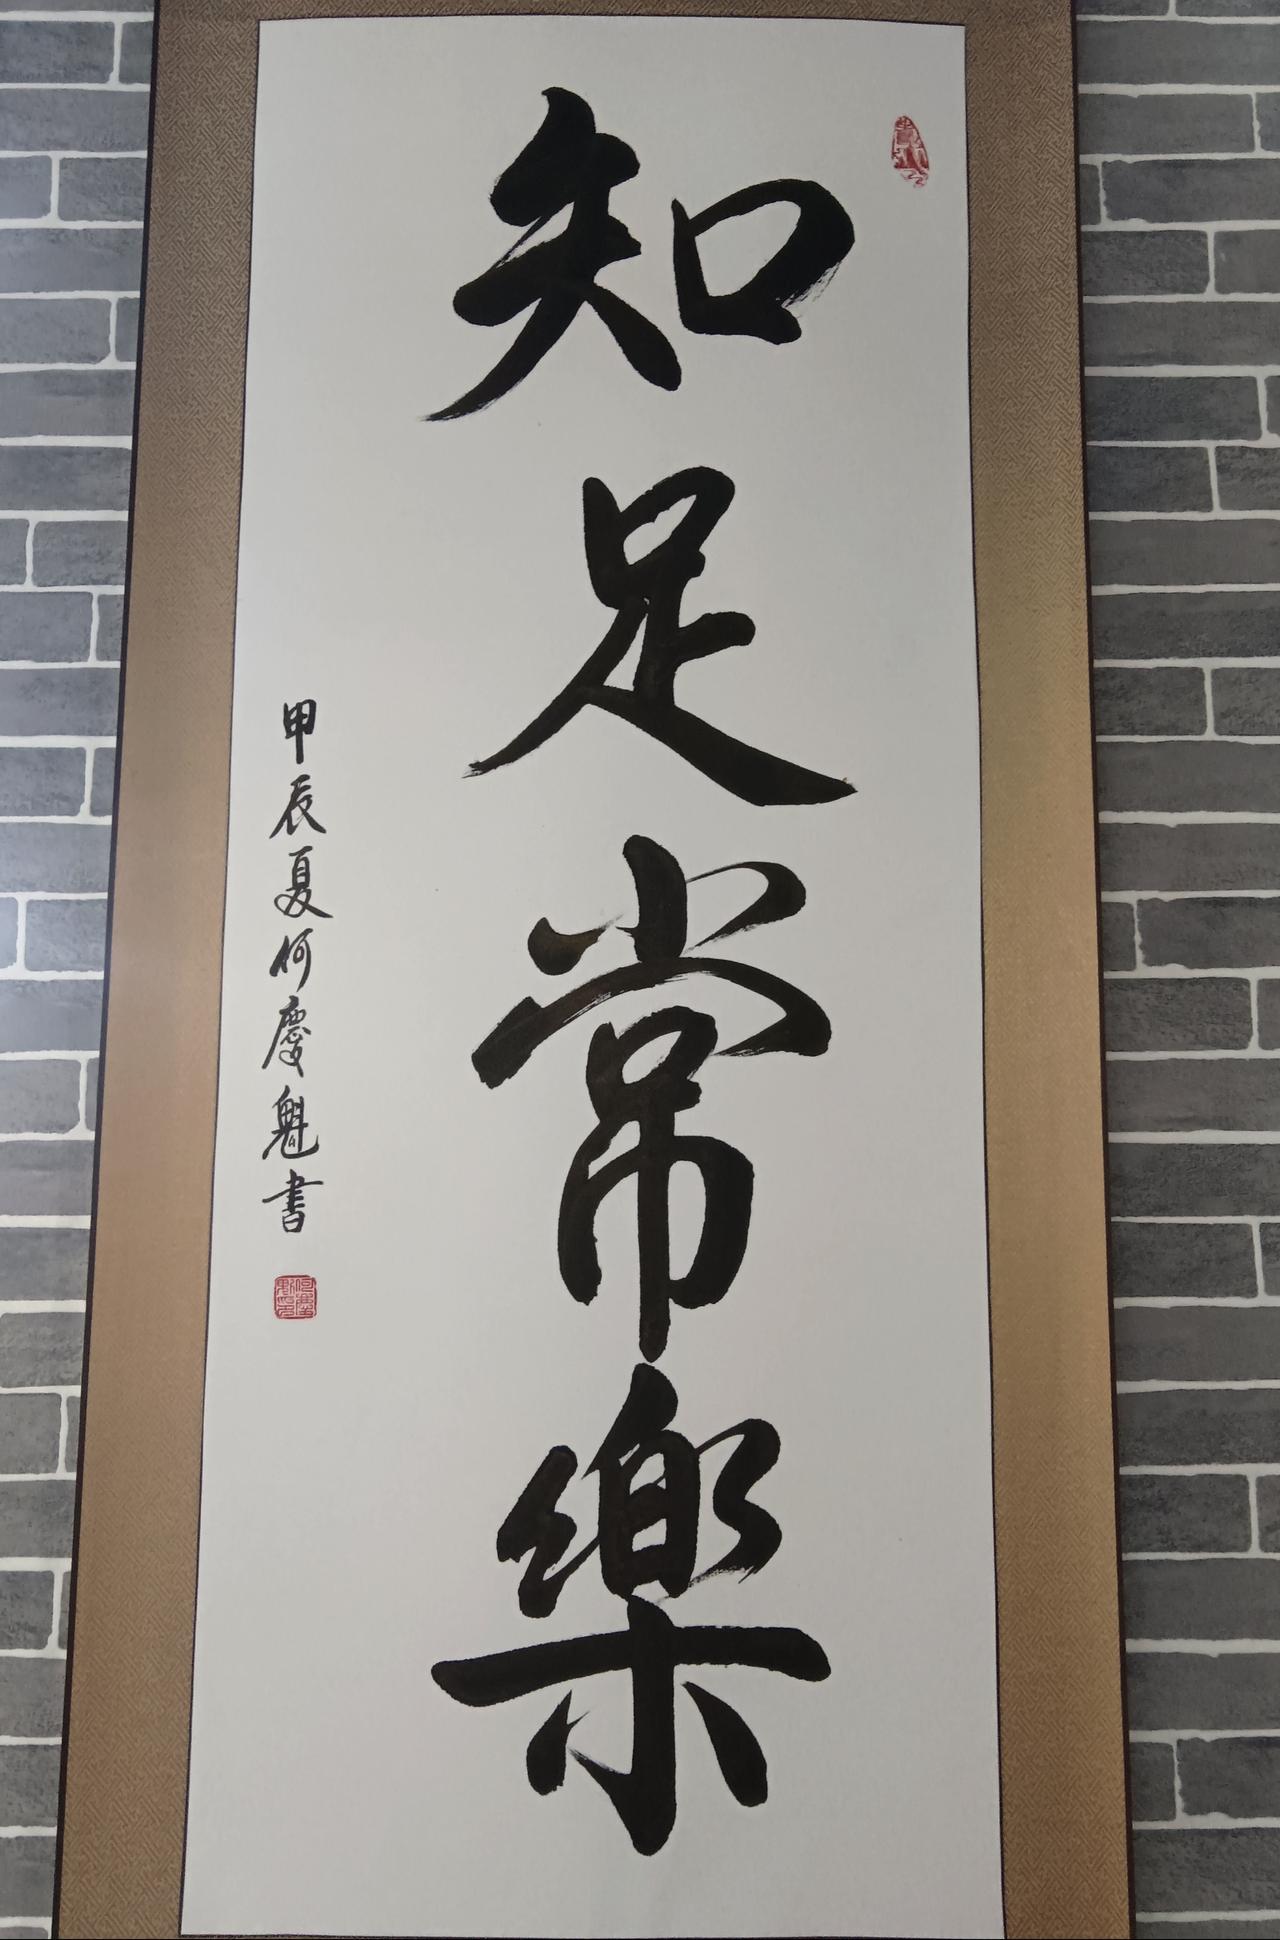 知足常樂
甲辰夏何慶魁書